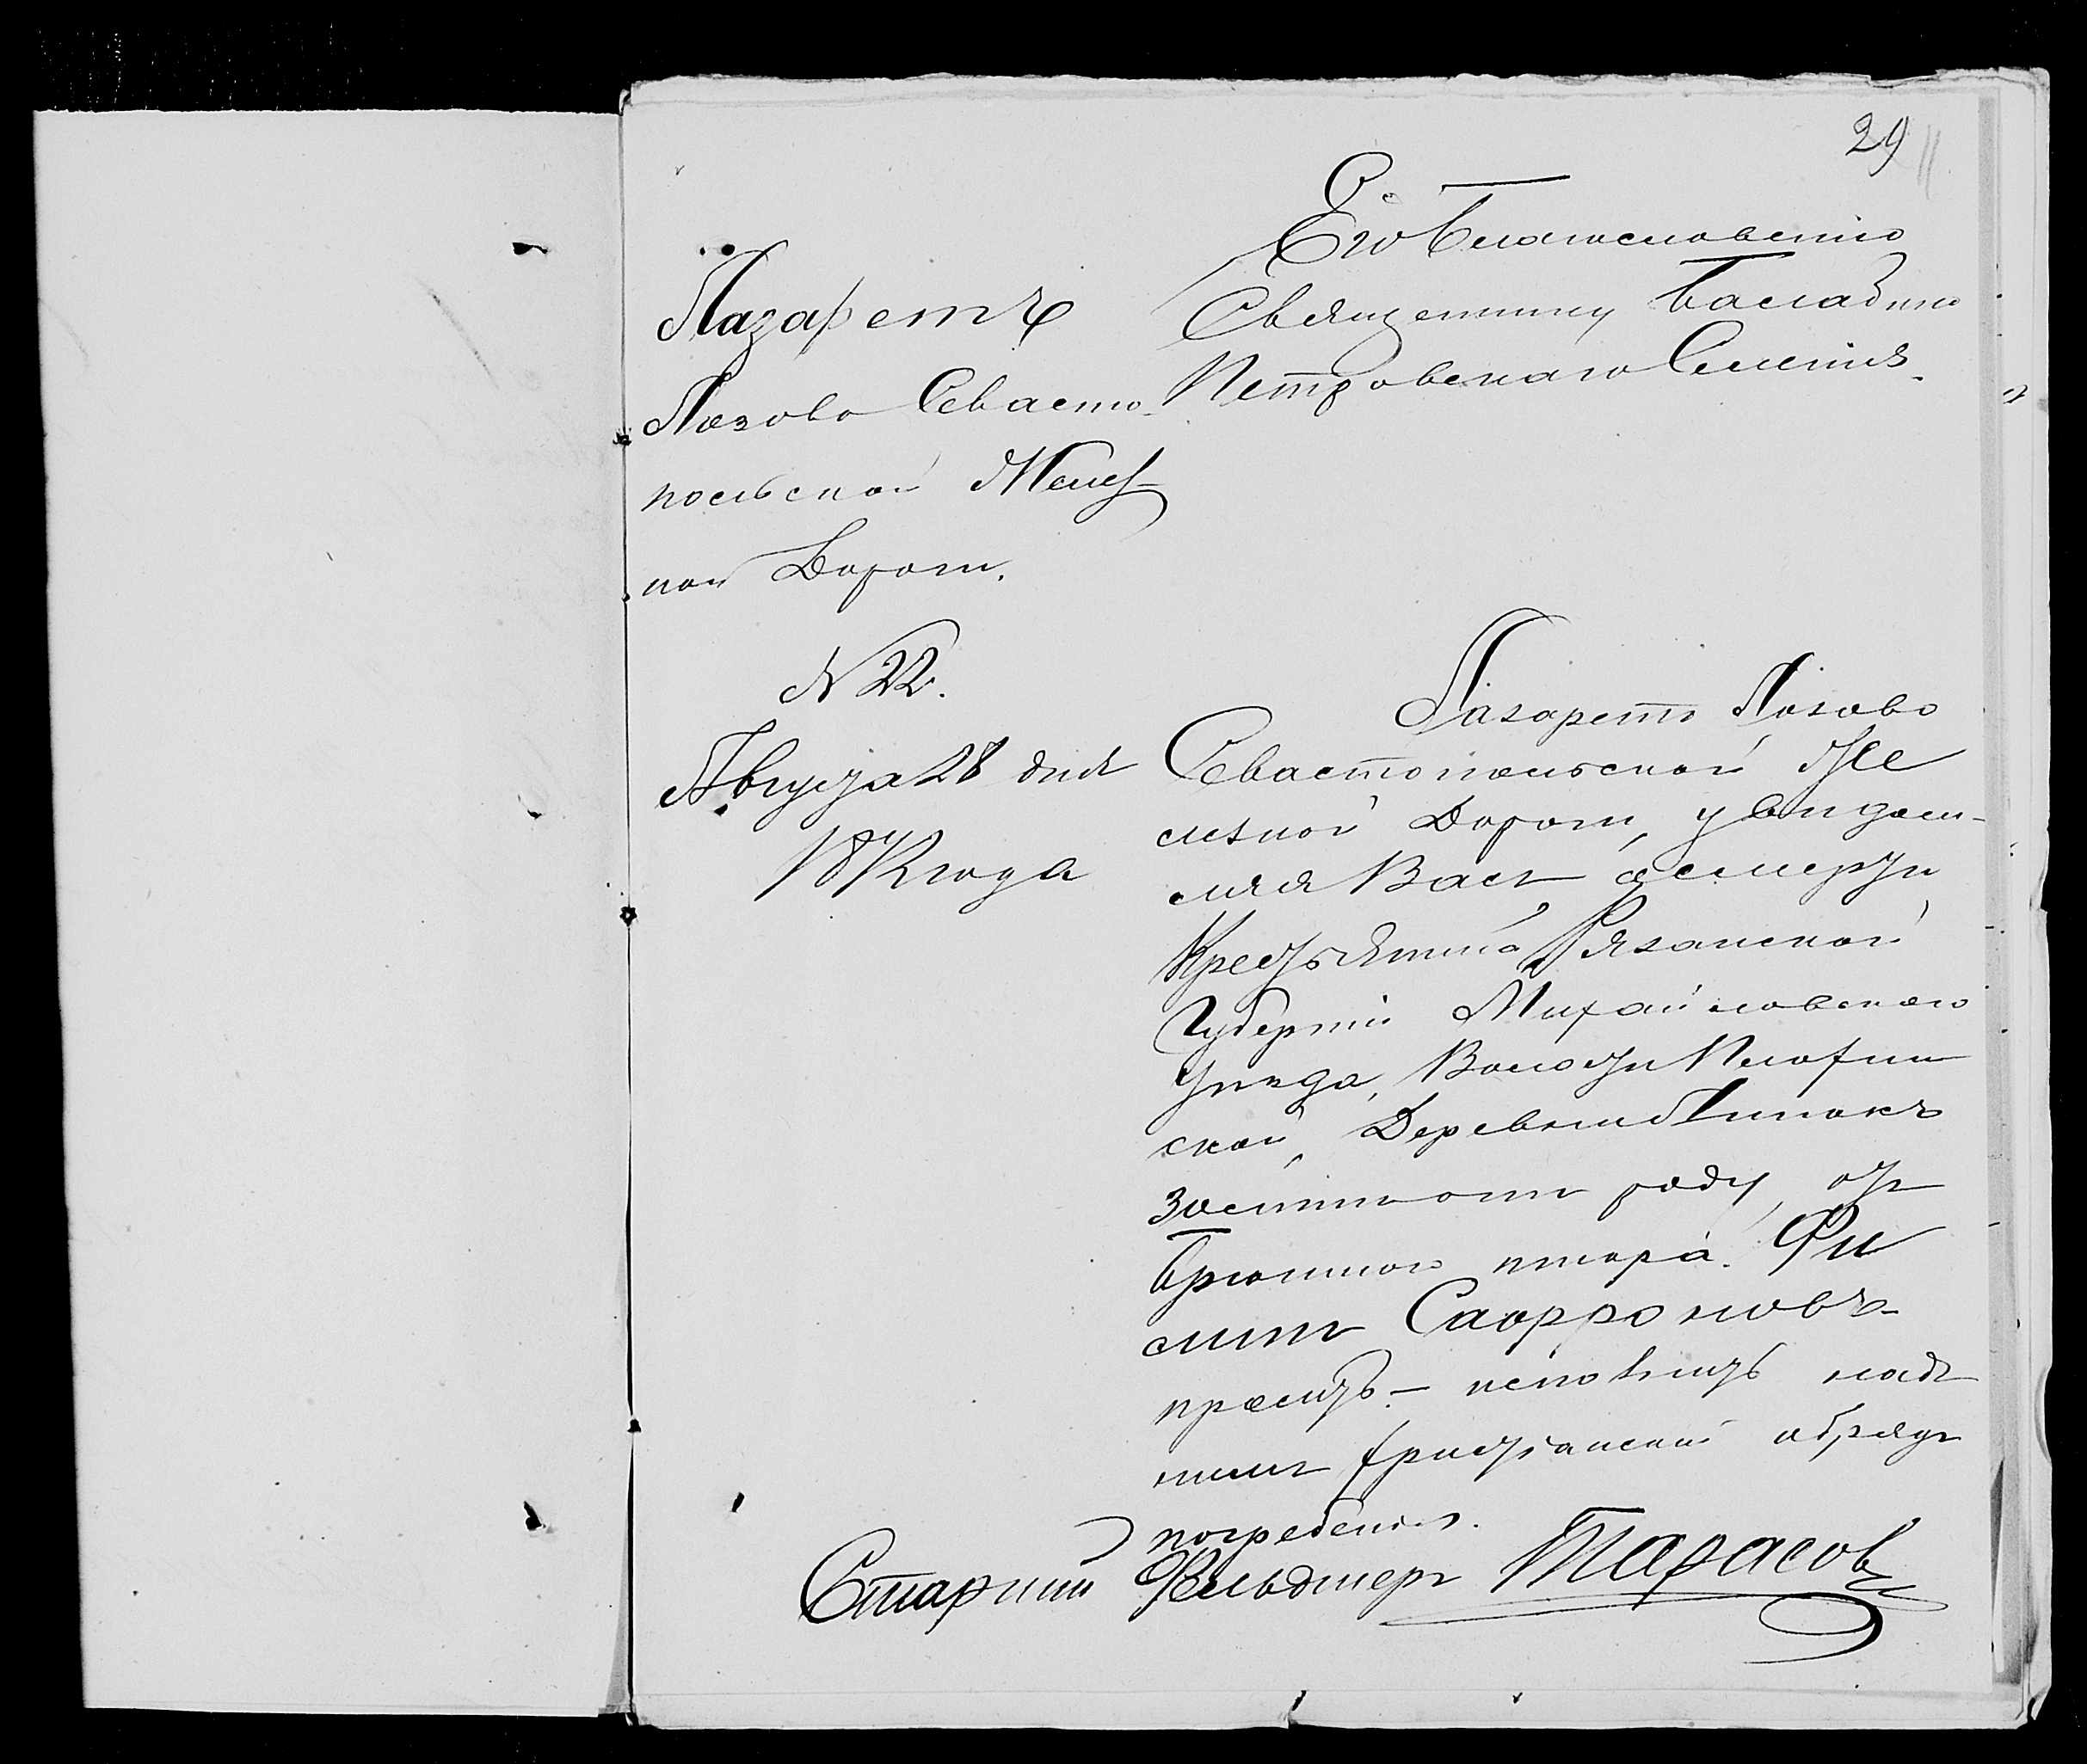 29
Лазаретъ
Лозово Севасто-
польской Желѣз-
ной Дороги.
N 22.
Августа 28 дня
187 года
Его Благословению
Священнику
Петровскаго Селения.
Лазаретъ Лозово
Севастопольской Же
лѣзной Дороги, увидом-
ляя Васъ о смерти
Крестьянина Рязанской
Губерніи Михайловскаго
Уизда, Волости
ской, Деревни
роду, отъ
Брюшного тифа. Фи
липъ Сафроновъ
проситъ исполнить надъ
нимъ христіанскій обрядъ
погребения.
Старший Фельдшеръ Тарасовъ